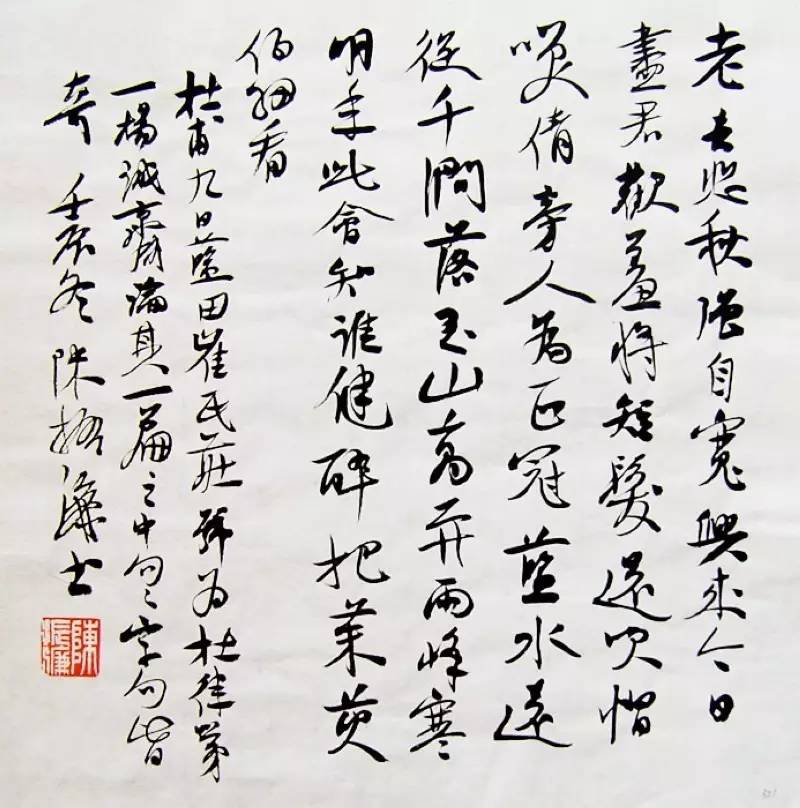 老去悲秋強自寬興來今日
盡君歡羞將短髮還吹帽
笑倩旁人為正冠藍水遠
從千澗落玉山高并兩峰寒
明年此會知誰健醉把茱萸
仔細看
杜甫九日藍田崔氏莊號為杜律第
一楊誠齋謂其一篇之中句々字句皆
奇 壬辰冬 陳振濂書
陳振濂